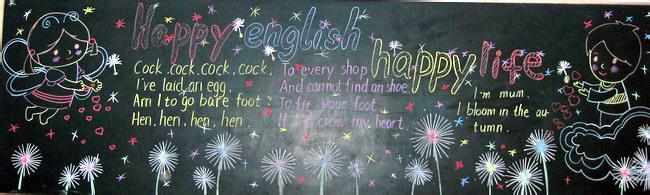 Happy english
happy life
Cock, cock, cock, cock,
I've laid an egg,
Am I to go bare foot?
Hen, hen, hen, hen
To every shop
And cannot find an shoe
To fit your foot
my heart.
I'm mum,
I bloom in the au
tumn.